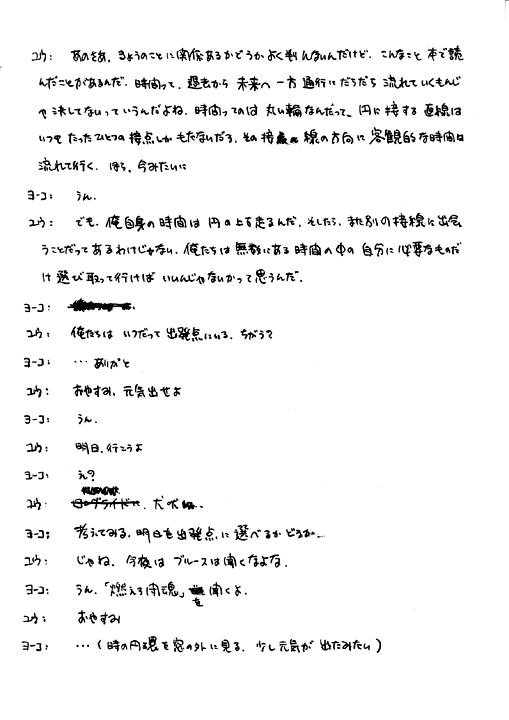 ユウ: あのさあ、きょうのことに関係あるかどうかよく判んないんだけど、こんなこと本で読
んだことがあるんだ。時間って、過去から未来へ一方通行にだらだら流れていくもんじ
ゃ決してないっていうんだよね。時間ってのは丸い輪なんだって、円に接する直線は
いつもたったひとつの接点しかもたないだろ、その接線の方向に客観的な時間は
流れて行く。ほら、今みたいに
ヨーコ: うん。
ユウ: でも、俺自身の時間は円の上を走るんだ。そしたら、また別の接線に出会
うことだってあるわけじゃない。俺たちは無数にある時間の中の自分に必要なものだ
け選び取って行けばいいんじゃないかって思うんだ。
ヨーコ:
ユウ: 俺たちはいつだって出発点にいる、ちがう?
ヨーコ: …ありがと
ユウ: おやすみ、元気出せよ
ヨーコ: うん。
ユウ: 明日、行こうよ
ヨーコ: え?
ユウ:
ヨーコ: 考えてみる。明日を出発点に選べるかどうか…
ユウ: じゃね。今夜はブルースは聞くなよな。
ヨーコ: うん。「燃えろ闘魂」を聞くよ。
ユウ: おやすみ
ヨーコ: …(時の円環を窓の外に見る、少し元気が出たみたい)